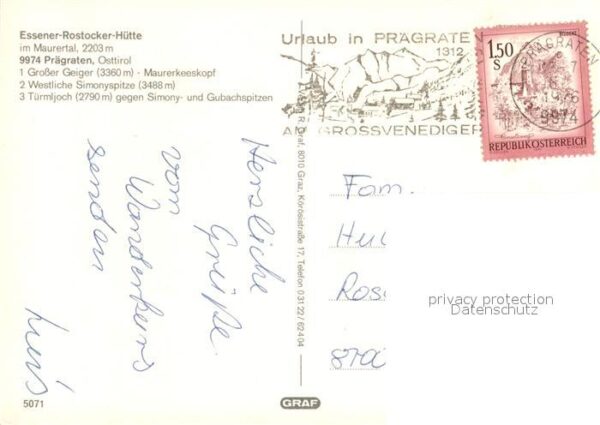 Essener-Rostocker-Hütte
im Maurertal, 2203 m
9974 Prägraten, Osttirol
1 Großer Geiger (3360 m) - Maurerkeeskopf
2 Westliche Simonyspitze (3488 m)
3 Türmljoch (2790 m) gegen Simony- und Gubachspitzen
Herzliche
Grüße
vom
Wanderkurs
senden
5071
R. Graf, 8010 Graz, Körösistraße 17, Telefon 03122/62404
GRAF
Urlaub in PRÄGRATEN
1312
AM GROSSVENEDIGER
PRÄGRATEN
1976
9974
1.50
S
REPUBLIK ÖSTERREICH
Fam.
privacy protection
Datenschutz